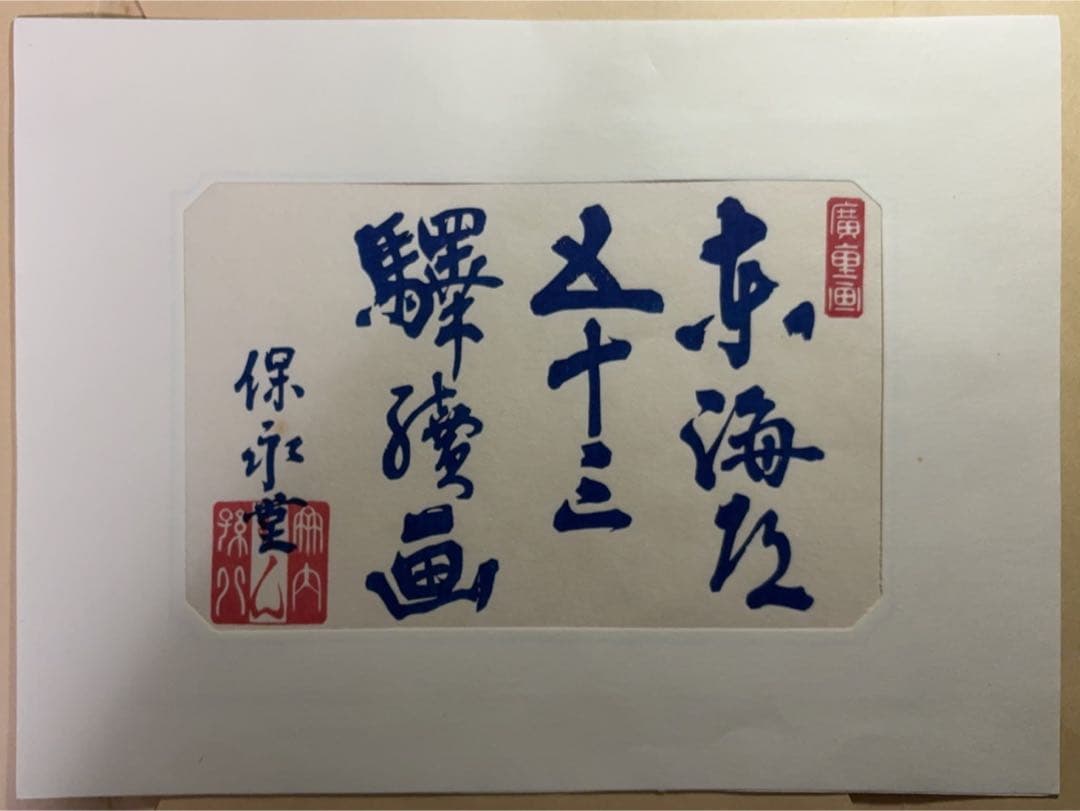 廣重画
東海道
五十三
驛續画
保永堂